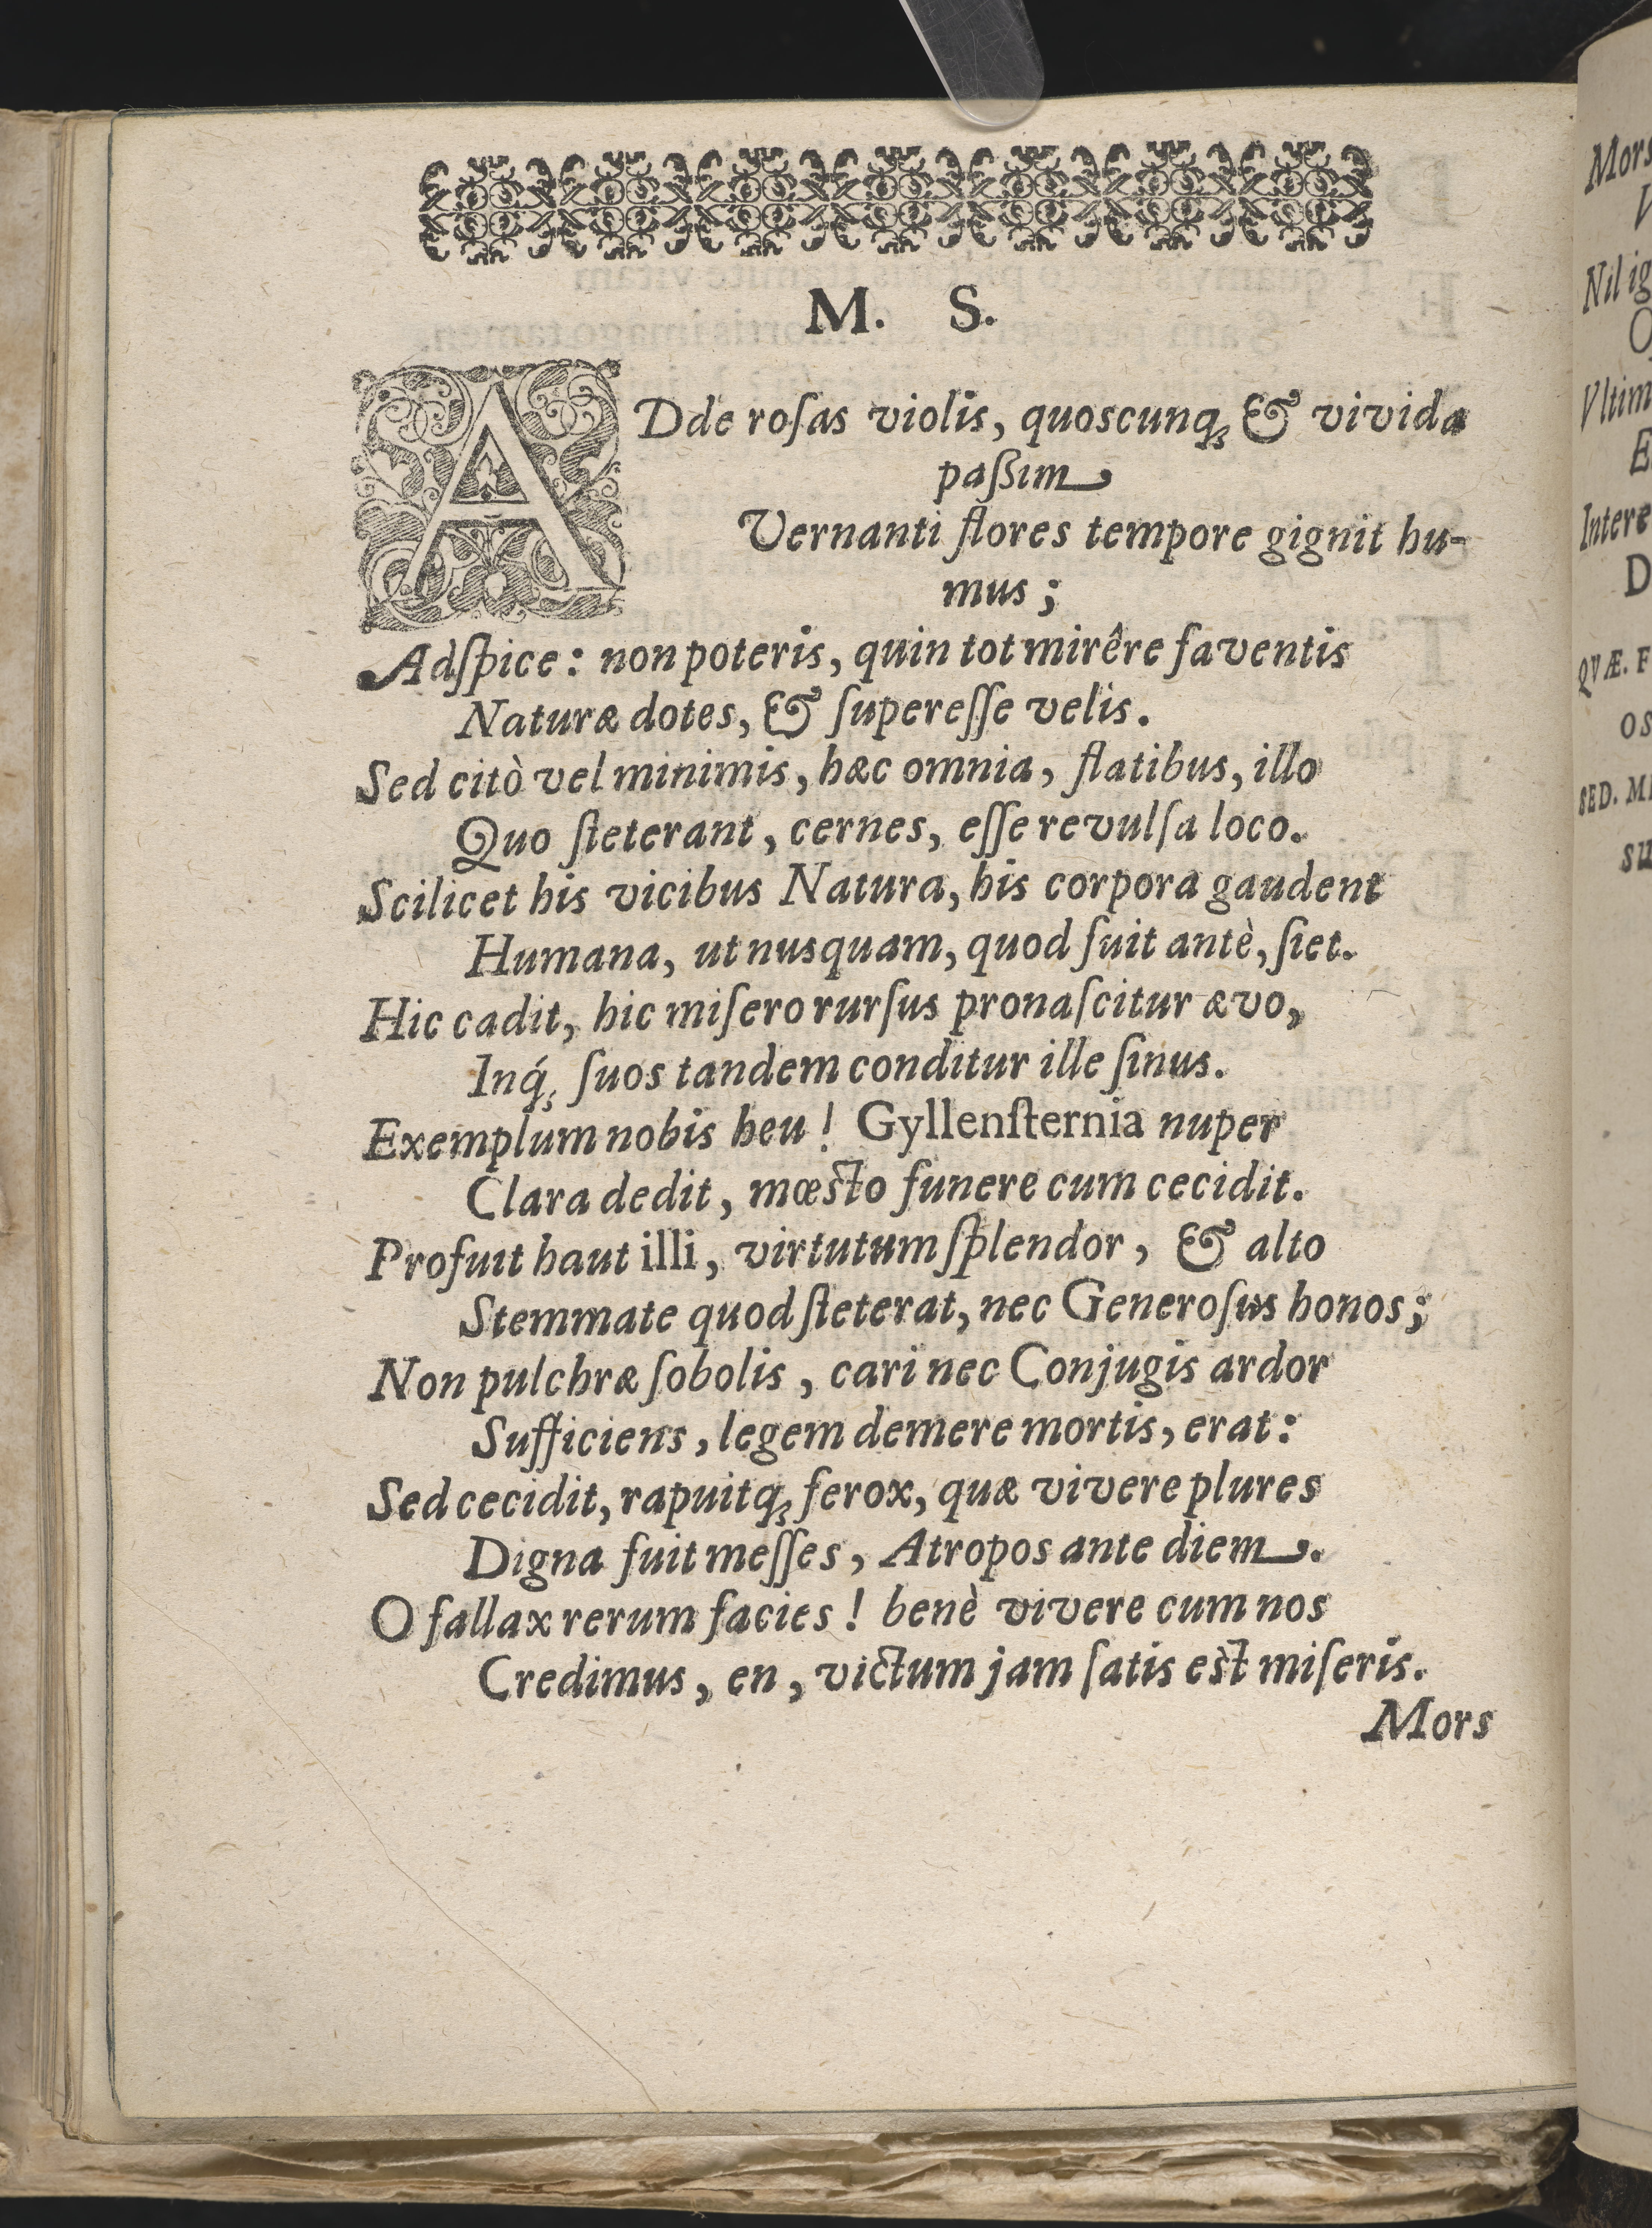 M. S.
ADde roſas violis, quoscunq́ꝫ & vivida
paſsim
Vernanti flores tempore gignit hu-
mus;
Adſpice: non poteris, quin tot mirêre faventis
Naturæ dotes, & ſupereſſe velis.
Sed citò vel minimis, hæc omnia, flatibus, illo
Quo ſteterant, cernes, eſſe revulſa loco.
Scilicet his vicibus Natura, his corpora gaudent
Humana, ut nusquam, quod fuit antè, ſiet.
Hic cadit, hic miſero rurſus pronaſcitur ævo,
Inq́ꝫ ſuos tandem conditur ille ſinus.
Exemplum nobis heu! Gyllenſternia nuper
Clara dedit, mœſto funere cum cecidit.
Profuit haut illi, virtutum ſplendor, & alto
Stemmate quod ſteterat, nec Generoſus honos;
Non pulchræ ſobolis, cari nec Conjugis ardor
Sufficiens, legem demere mortis, erat:
Sed cecidit, rapuitqꝫ ferox, quæ vivere plures
Digna fuit meſſes, Atropos ante diem.
O fallax rerum facies! benè vivere cum nos
Credimus, en, victum jam ſatis eſt miſeris.
Mors
Mors
V
Nil ig
O
Vltim
E
Intere
D
QVÆ. F
OS
SED. M
SU